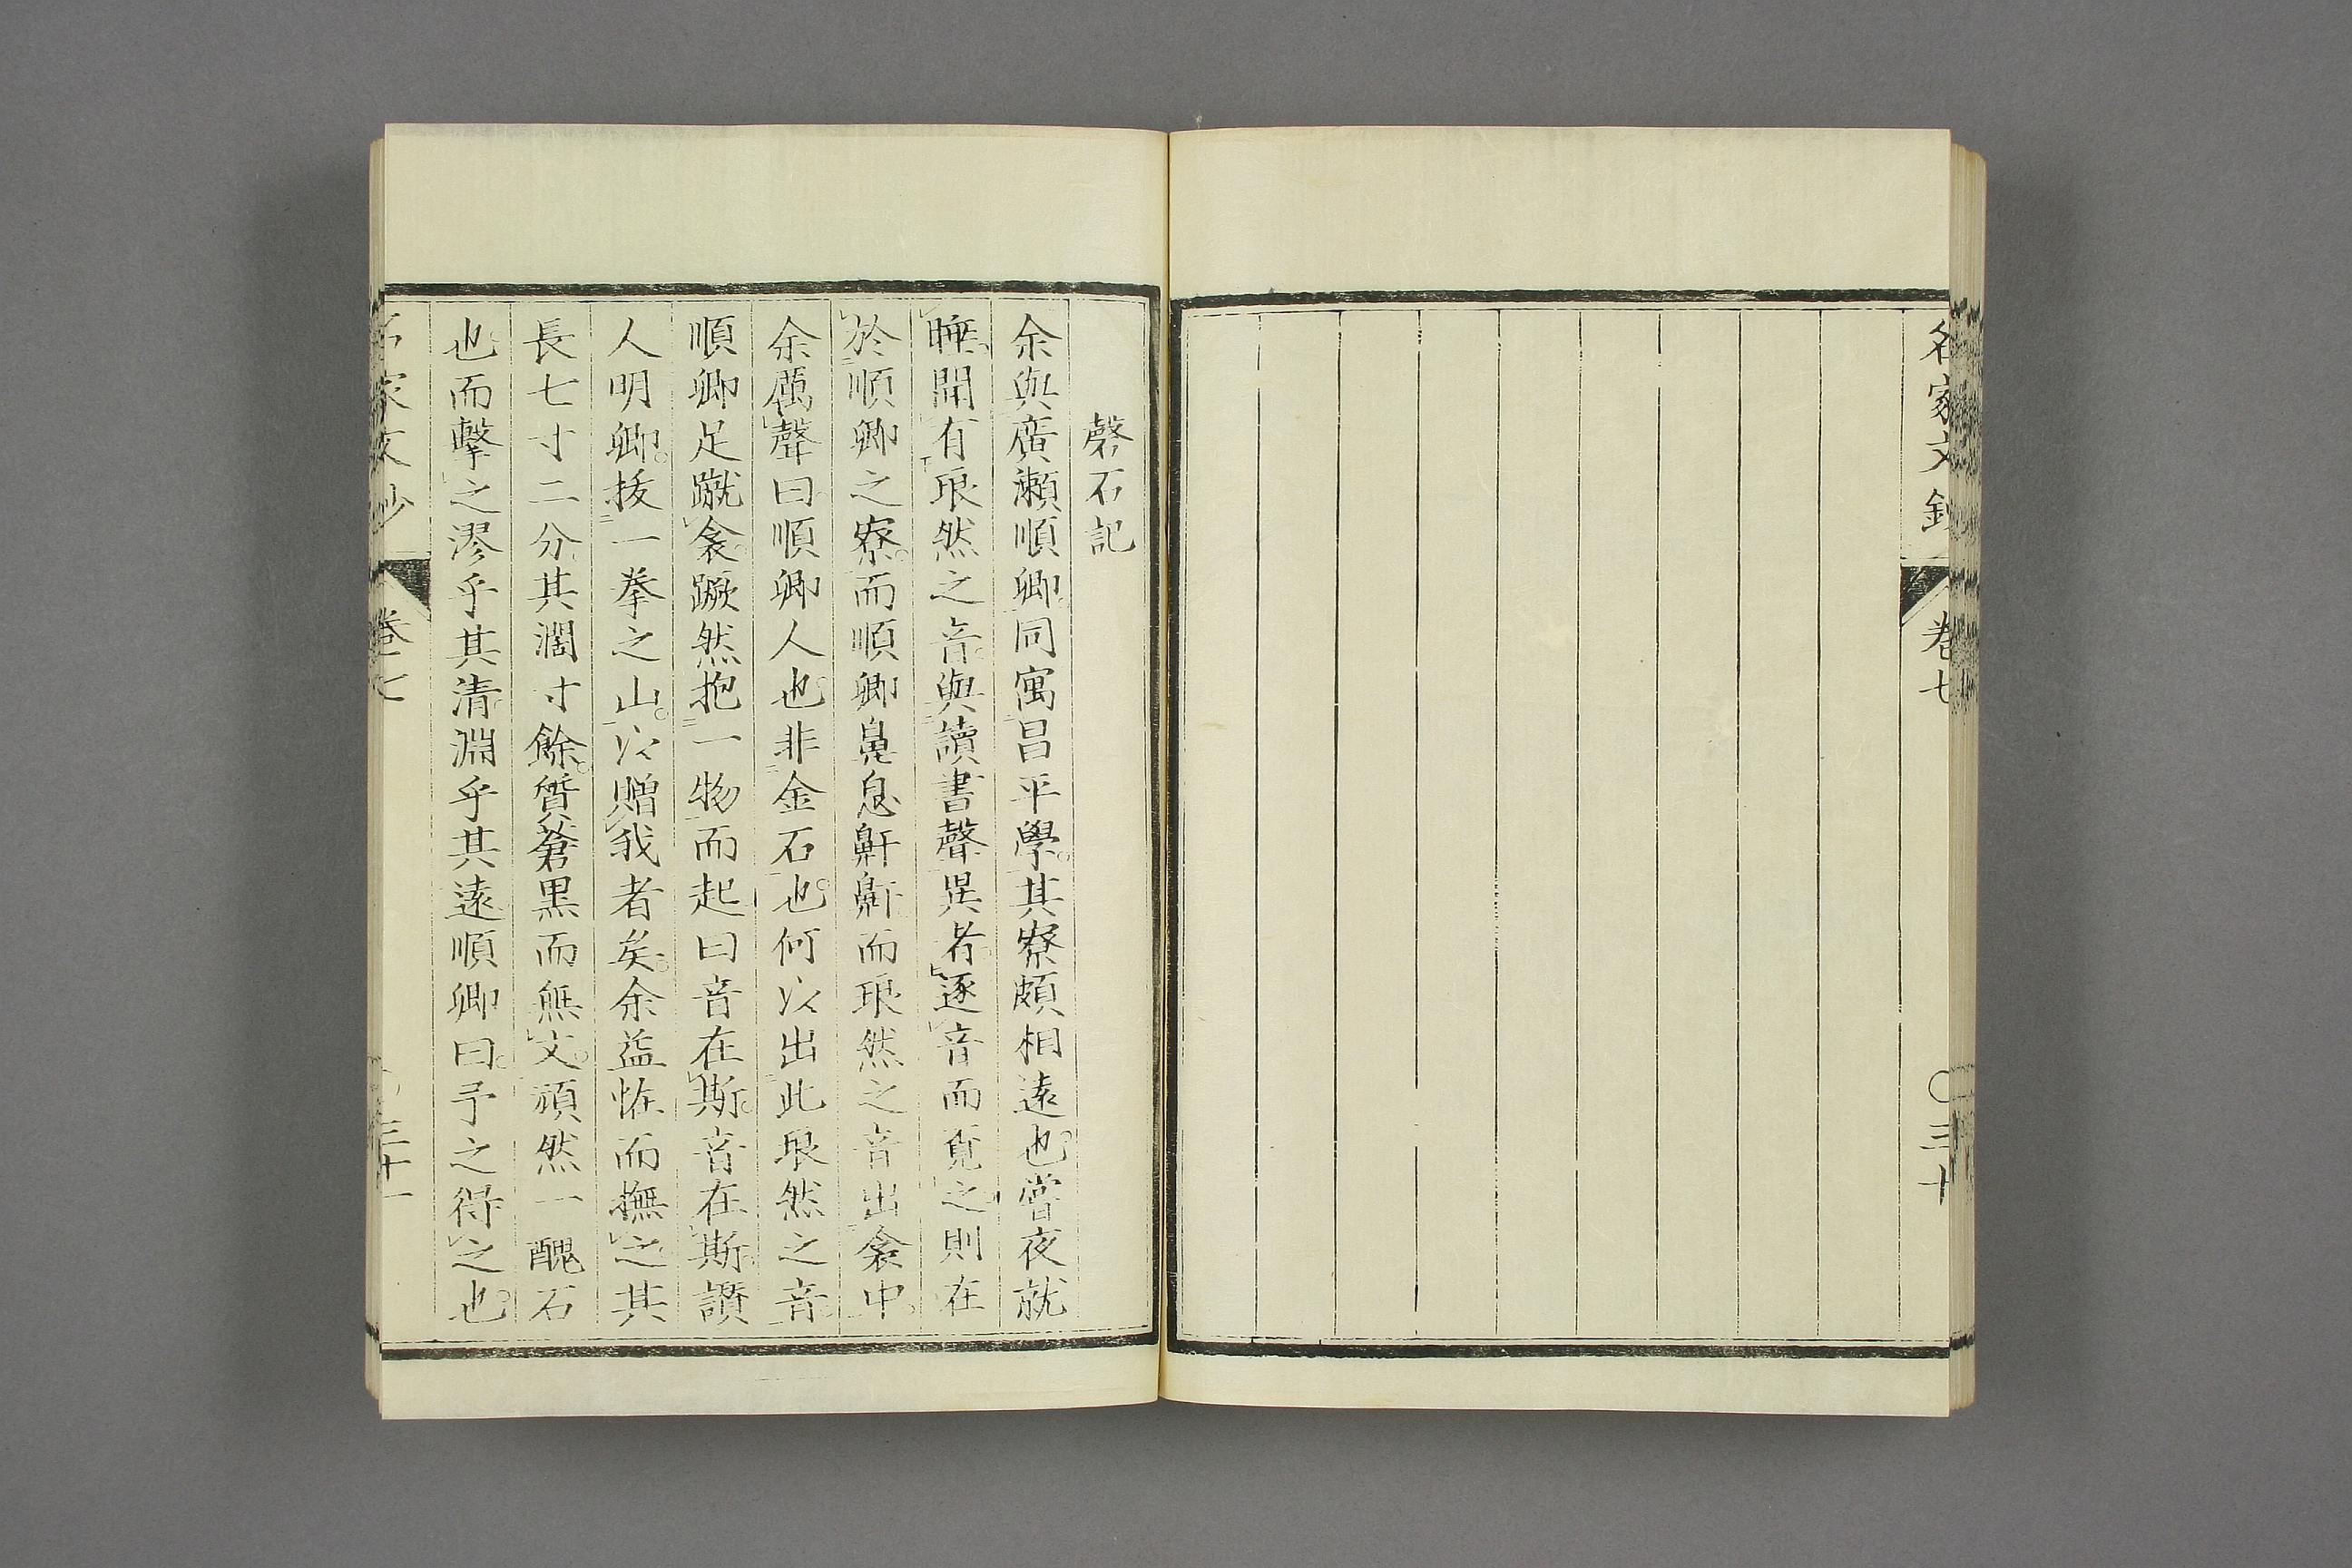 名家文鈔 卷七 〇三十
磬石記
余與廣瀬順卿同寓昌平學其寮頗相遠也嘗夜就
睡聞有琅然之音與讀書聲異者逐音而覓之則在
於順卿之寮而順卿鼻息鼾鼾而琅然之音出衾中
余厲聲曰順卿人也非金石也何以出此琅然之音
順卿足蹴衾蹶然抱一物而起曰音在斯音在斯讃
人明卿拔一拳之山以贈我者矣余益恠而撫之其
長七寸二分其濶寸餘質蒼黒而無文頑然一醜石
也而擊之漻乎其清淵乎其遠順卿曰予之得之也
名家文鈔 卷七 三十一